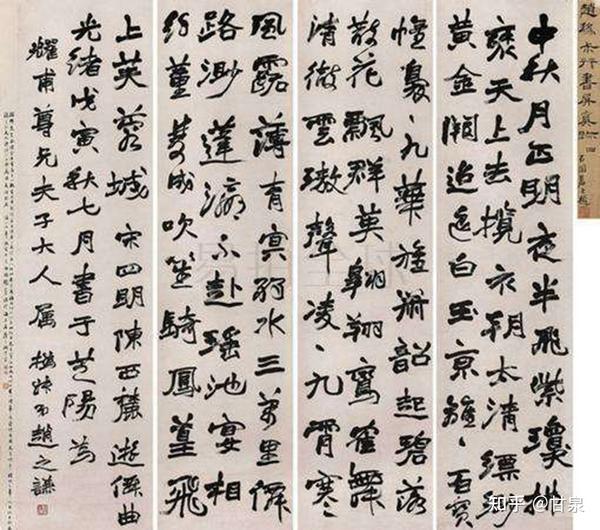 趙撝叔行書屏真跡 四
中秋月正明夜半飛紫瓊
天上去攬衣朝太清縹緲
黃金闕迢迢白玉京雜〻百寶
幢裊〻九華旌笙韶起碧落
散花飄群英翱翔鸞雀舞
清徹雲璈聲凌〻九霄寒〻
風露薄青冥弱水三萬里僊
路渺蓬瀛不赴瑤池宴相
約董雙成吹笙騎鳳凰飛
上芙蓉城 宋四明陳西麓遊僊曲
光緒戊寅秋七月書于芝陽為
耀甫尊兄夫子大人屬 撝叔弟趙之謙
知乎 @甘泉